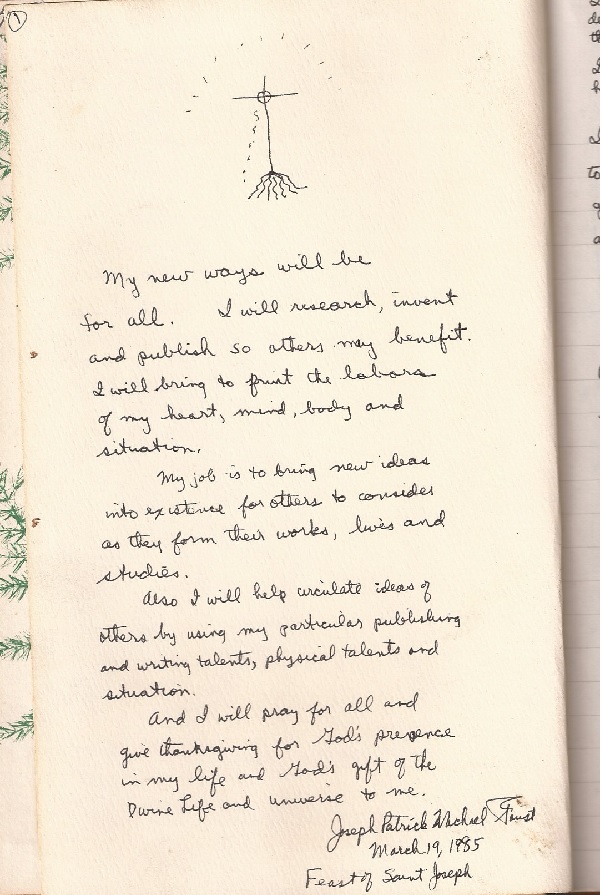 1
My new ways will be
for all. I will research, invent
and publish so others may benefit.
I will bring to print the labors
of my heart, mind, body and
situation.
My job is to bring new ideas
into existence for others to consider
as they form their works, lives and
studies.
Also I will help circulate ideas of
others by using my particular publishing
and writing talents, physical talents and
situation.
And I will pray for all and
give thanksgiving for God's presence
in my life and God's gift of the
Divine Life and universe to me.
Joseph Patrick Michael
March 19, 1985
Feast of Saint Joseph